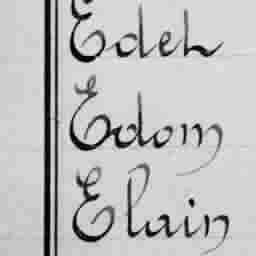 Edeh
Edom
Elain